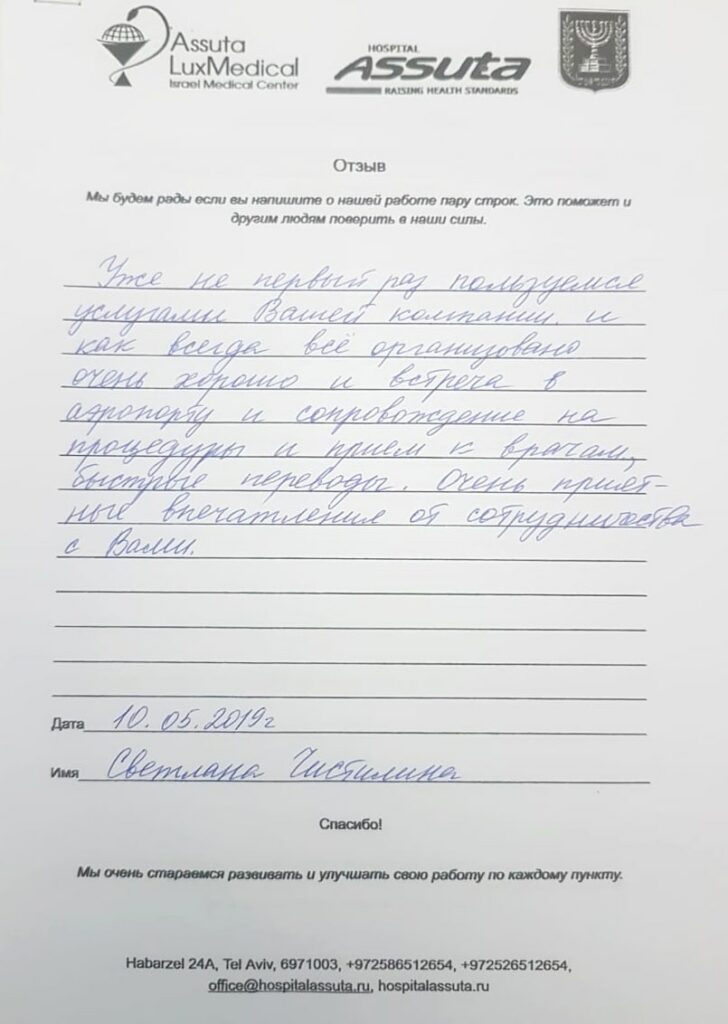 Assuta
LuxMedical
Israel Medical Center
HOSPITAL
ASSUTA
RAISING HEALTH STANDARDS
Отзыв
Мы будем рады если вы напишите о нашей работе пару строк. Это поможет и
другим людям поверить в наши силы.
Уже не первый раз пользуемся
услугами Вашей компании и
как всегда всё организовано
очень хорошо и встреча в
аэропорту и сопровождение на
процедуры и прием к врачам,
быстрые переводы. Очень прият-
ные впечатления от сотрудничества
с Вами.
Дата 10.05.2019г
Имя Светлана Чистилина
Спасибо!
Мы очень стараемся развивать и улучшать свою работу по каждому пункту.
Habarzel 24A, Tel Aviv, 6971003, +972586512654, +972526512654,
office@hospitalassuta.ru, hospitalassuta.ru